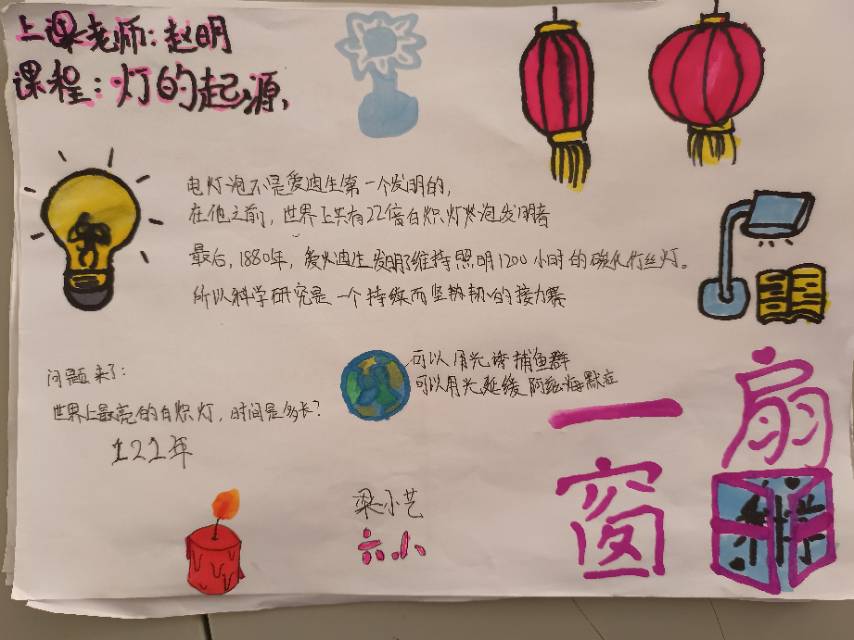 上课老师：赵明
课程：灯的起源，
电灯泡不是爱迪生第一个发明的，
在他之前，世界上共有22倍白炽灯灯泡发明者
最后，1880年，爱迪生发明了维持照明1200小时的碳化竹丝灯。
所以科学研究是一个持续而坚韧的接力赛
可以用光诱捕鱼群
可以用光延缓阿兹海默症
问题来了：
世界上最亮的白炽灯，时间是多长？
121年
一扇
窗
梁小艺
六小